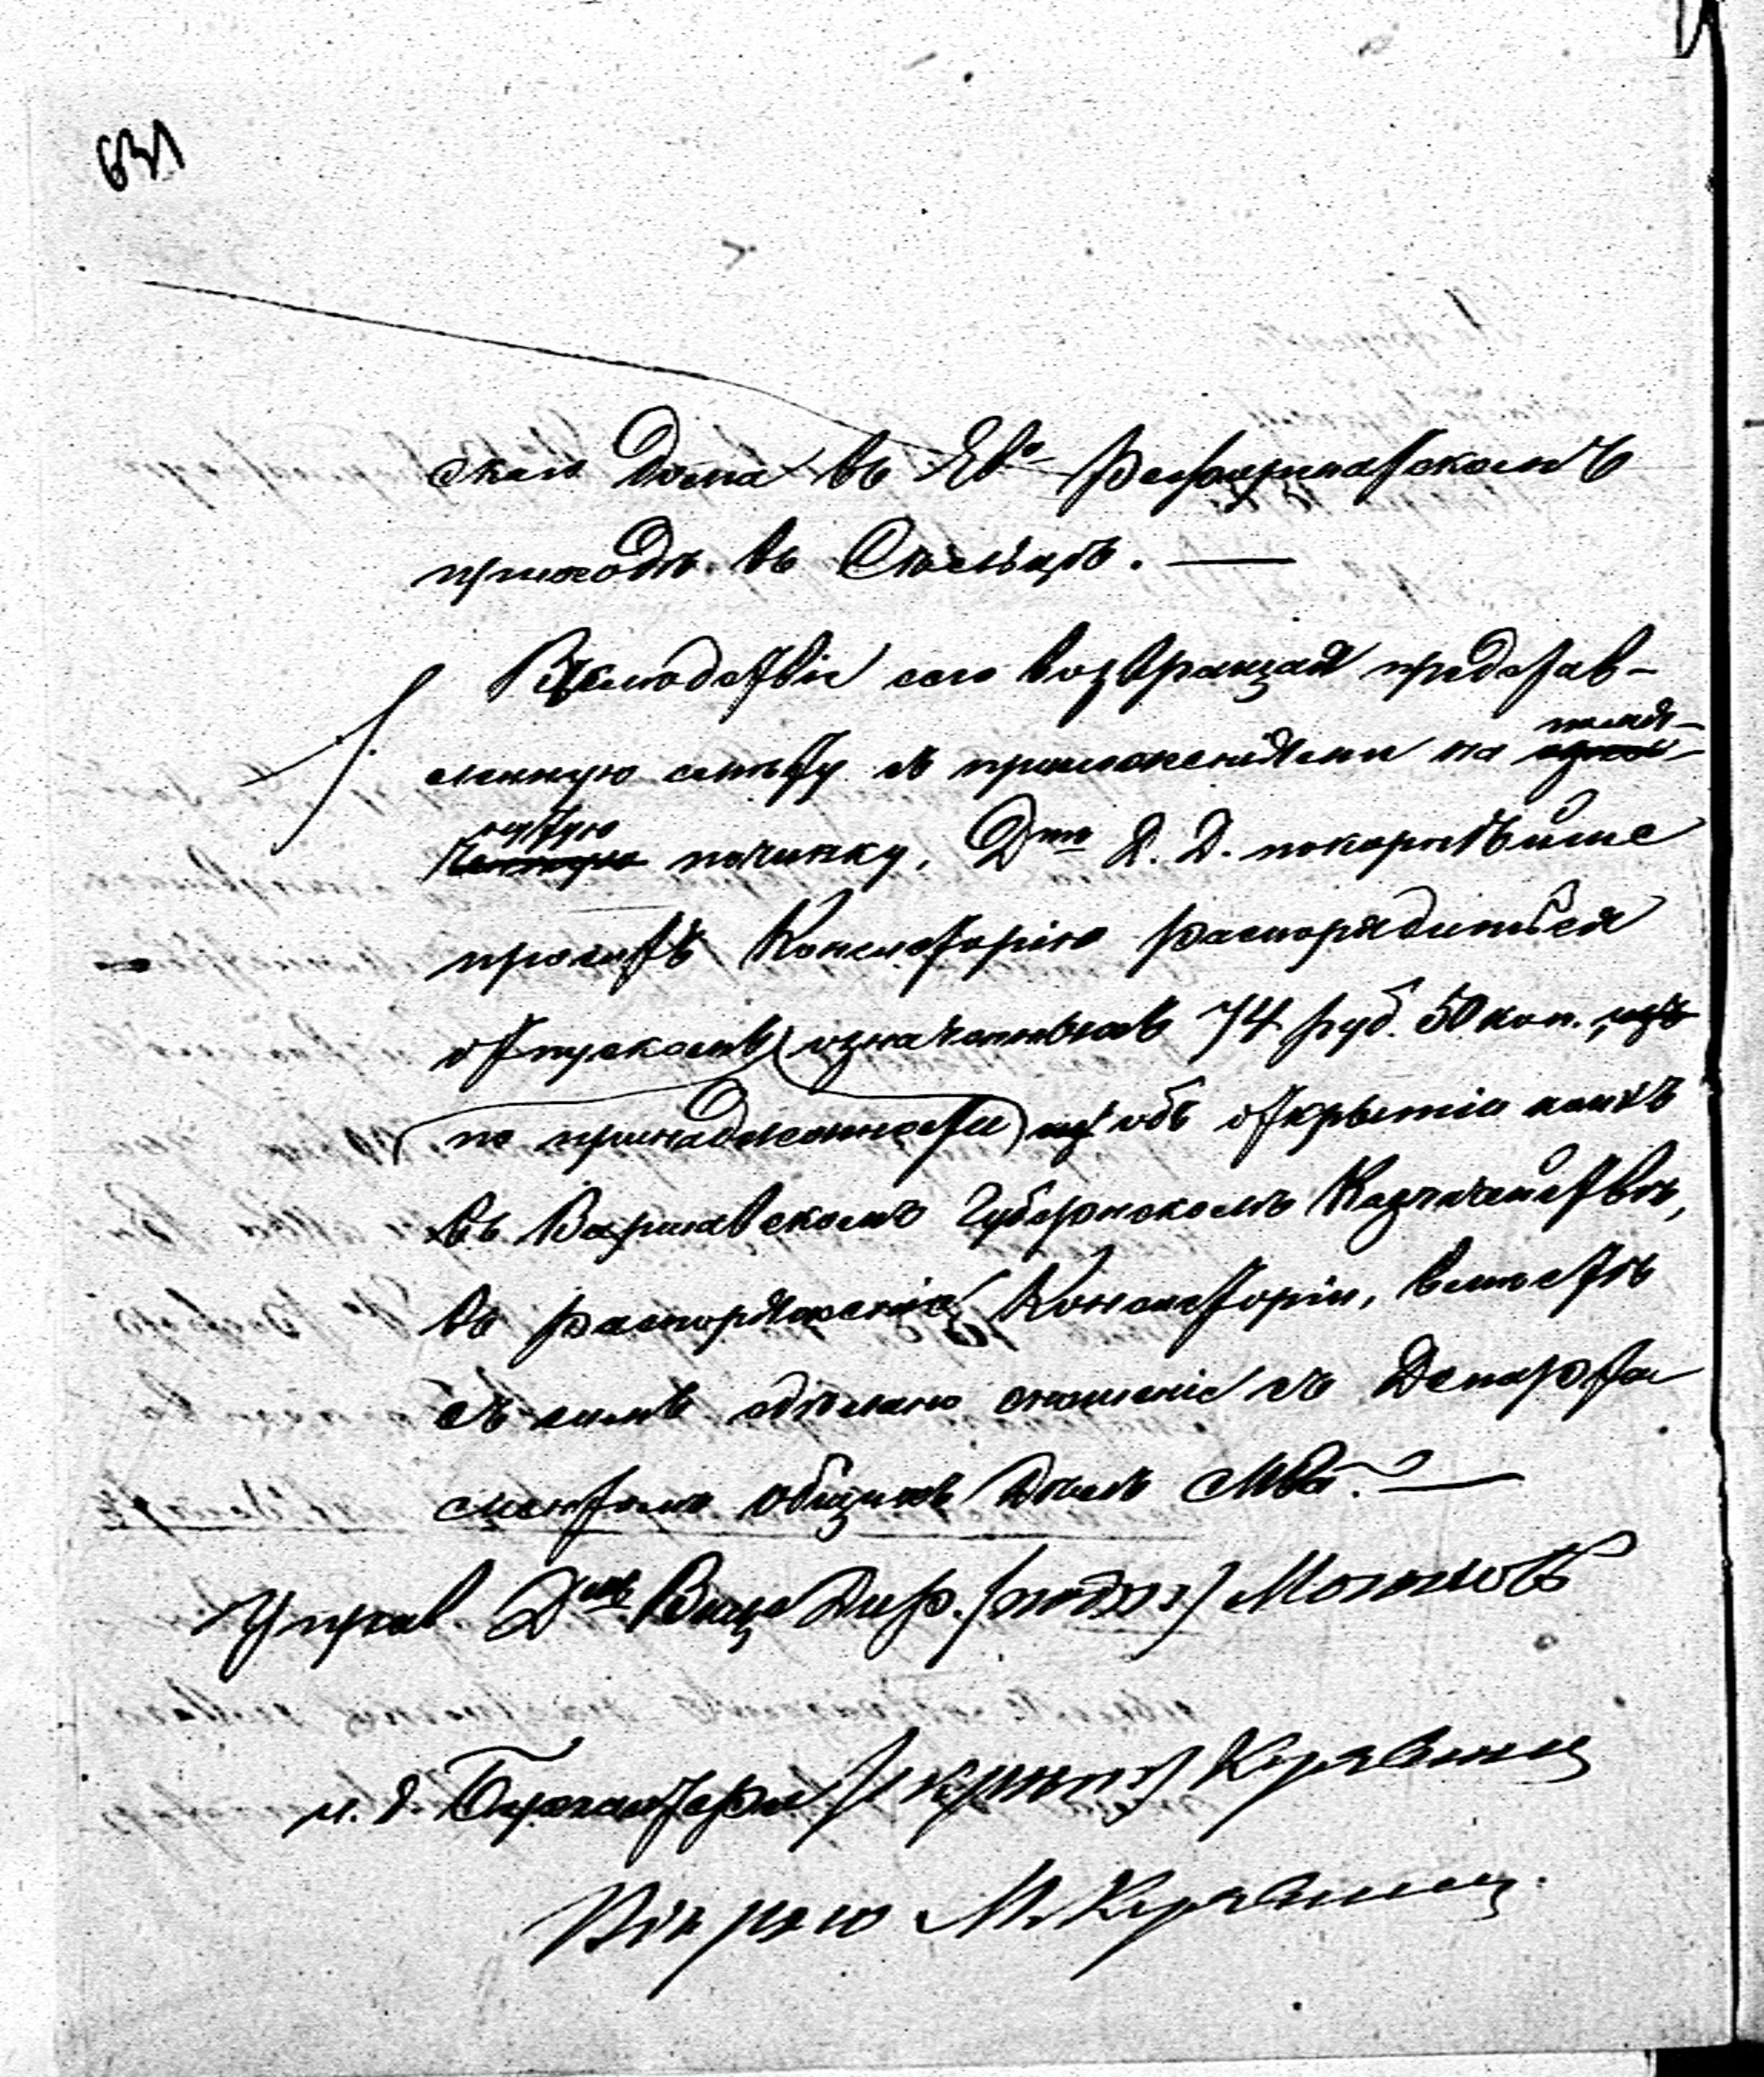 631
скаго дома въ Ев. Реформатскомъ
приходѣ въ Сѣльцѣ. —
Вслѣдствіе сего возвращая представ-
ленную смѣту съ приложеніями на
починку, Дтъ Д. Д. покорнѣйше
проситъ Консисторію распорядиться
отпускомъ означенныхъ 74 руб. 50 коп.
(по принадлежности) объ открытіи коихъ
въ Варшавскомъ Губернскомъ Казначействѣ,
въ распоряженіе Консисторіи, вмѣстѣ
съ симъ сдѣлано сношеніе съ Департа
ментомъ общихъ дѣлъ МВД. —
Управ. Дтмъ Вице Дир. (подп.)
и. д. Бухгалтера (скрѣпилъ)
Вѣрно М.